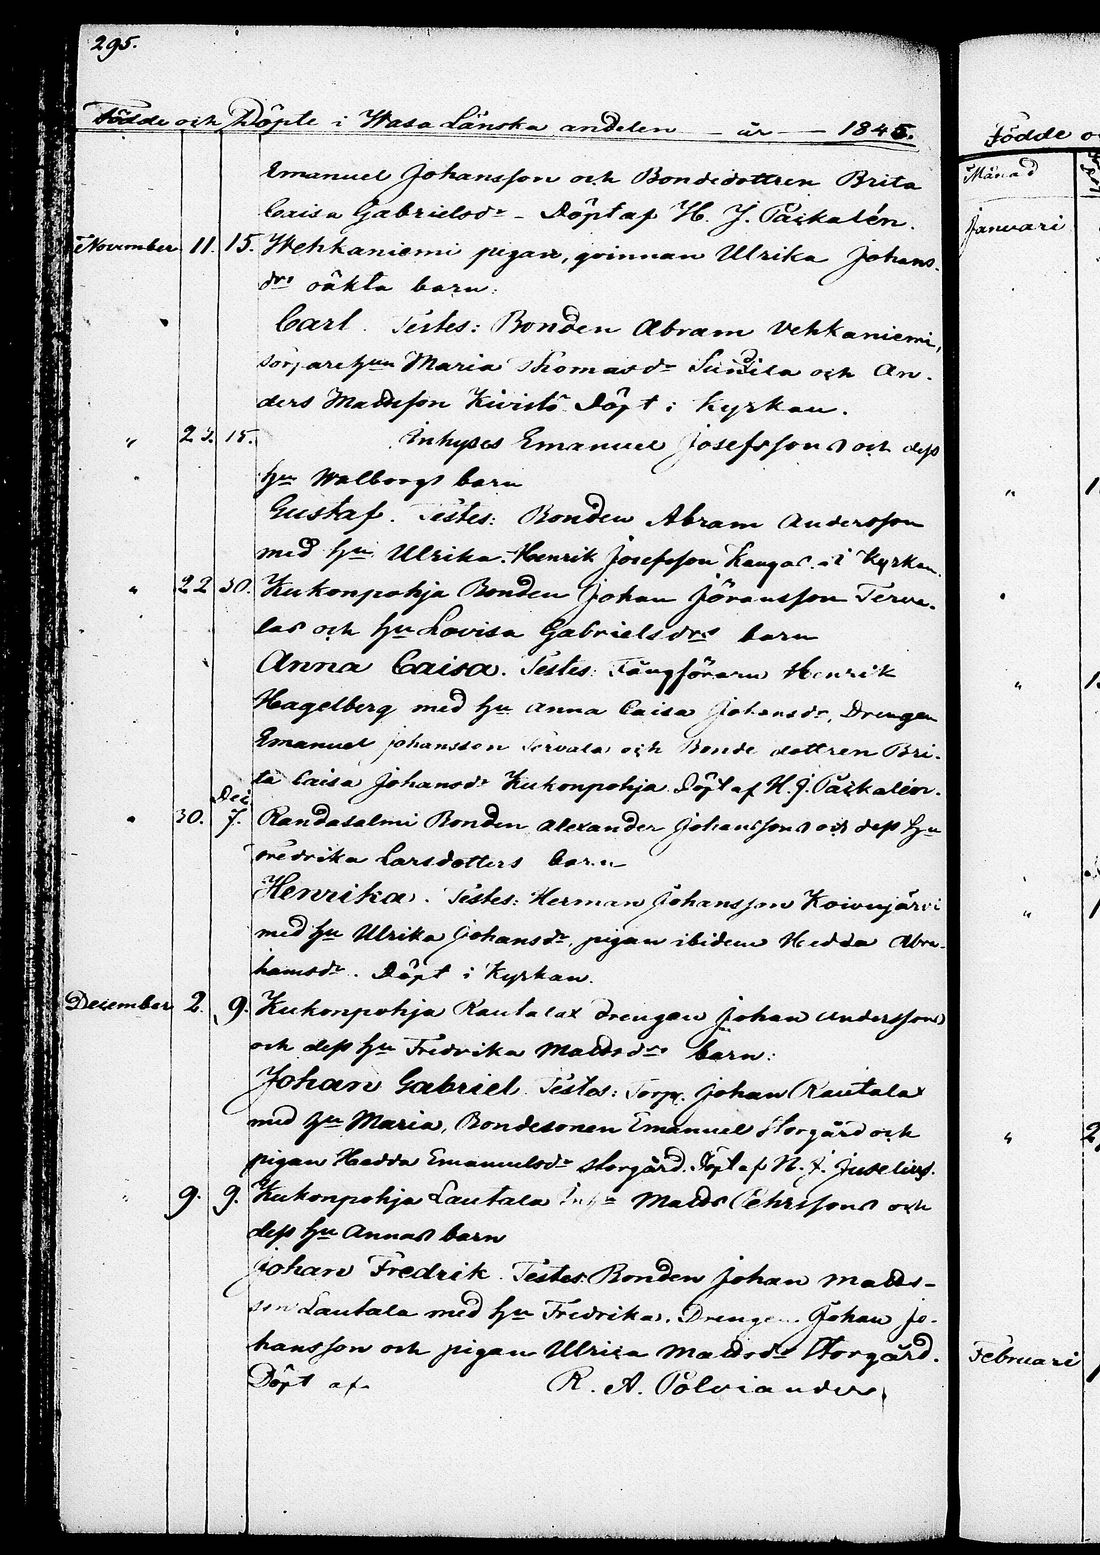 295.
Födde och Döpte i Wasa Länska andelen – år – 1845.
Emanuel Johansson och Bondedottren Brita
Caisa Gabrielsdr – Döpt af H. J. Paskalén.
November 11. 15. Wehkaniemi pigan, qvinnan Ulrika Johans-
drs oäkta barn:
Carl. Testes: Bonden Abram Vehkaniemi,
torpare hun Maria Thomasdr Sundila och An-
ders Mattsson Kivistö Döpt i Kyrkan.
" 15. Inhyses Emanuel Josefssons och dess
hu Walborgs barn
Gustaf. Testes: Bonden Abram Andersson
med hu Ulrika. Henrik Josefsson Kangas i Kyrkan.
" 22 30. Kukonpohja Bonden Johan Jöransson Terva-
las och hu Lovisa Gabrielsdrs barn
Anna Caisa. Testes: Fångföraren Henrik
Hagelberg med hu Anna Caisa Johansdr, Drengen
Emanuel Johansson Tervala och Bonde dottren Bri-
ta Caisa Johansdr Kukonpohja Döpt af H. J. Paskalén.
" 30. Dec. 7. Randasalmi Bonden Alexander Johanssons och dess hu
Fredrika Larsdotters barn
Henrika. Testes: Herman Johansson Koivujärvi
med hu Ulrika Johansdr, pigan ibidem Hedda Abra-
hamsdr. Döpt i Kyrkan.
December 2. 9. Kukonpohja Rautalax drengen Johan Anderssons
och dess hu Fredrika Mattsdrs barn:
Johan Gabriel. Testes: Torp. Johan Rautalax
med hu Maria, Bondesonen Emanuel Storgård och
pigan Hedda Emanuelsdr Storgård. Döpt af N. J. Juselius.
" 9. 9. Kukonpohja Lautala Matts och
dess hu Annas barn
Johan Fredrik. Testes: Bonden Johan Matts-
son Lautala med hu Fredrika. Drengen Johan Jo-
hansson och pigan Ulrica Mattsdr Storgård.
Döpt af R. A. Polviander.
Födde o
Månad
Januari
"
"
"
"
Februari